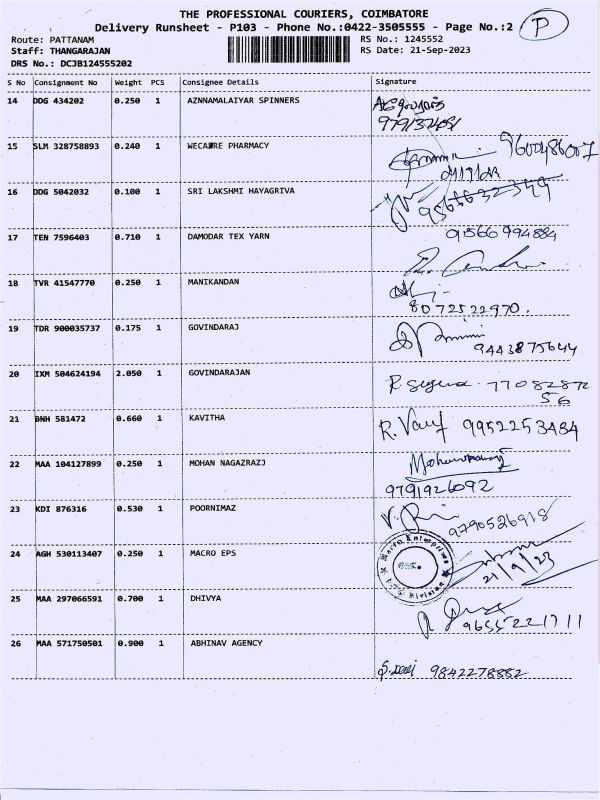 THE PROFESSIONAL COURIERS, COIMBATORE
Delivery Runsheet - P103 - Phone No.:0422-3505555 - Page No.:2 P
Route: PATTANAM RS No.: 1245552
Staff: THANGARAJAN RS Date: 21-Sep-2023
DRS No.: DCJB124555202
S No Consignment No Weight PCS Consignee Details Signature
14 DDG 434202 0.250 1 AZNNAMALAIYAR SPINNERS
15 SLM 328758893 0.240 1 WECAURE PHARMACY 9600486007
16 DDG 5042032 0.100 1 SRI LAKSHMI HAYAGRIVA
17 TEN 7596403 0.710 1 DAMODAR TEX YARN 91566 994884
18 TVR 41547770 0.250 1 MANIKANDAN
8072522970.
19 TDR 900035737 0.175 1 GOVINDARAJ
9443875644
20 IXM 504624194 2.050 1 GOVINDARAJAN R. 77082872
56
21 BNH 581472 0.660 1 KAVITHA R. 9952253484
22 MAA 104127899 0.250 1 MOHAN NAGAZRAZJ
9791926092
23 KDI 876316 0.530 1 POORNIMAZ
9790526918
24 AGH 530113407 0.250 1 MACRO EPS Macro Enterprises
21/9/23
25 MAA 297066591 0.700 1 DHIVYA
9655221711
26 MAA 571750501 0.900 1 ABHINAV AGENCY
S. Devi 9842278882